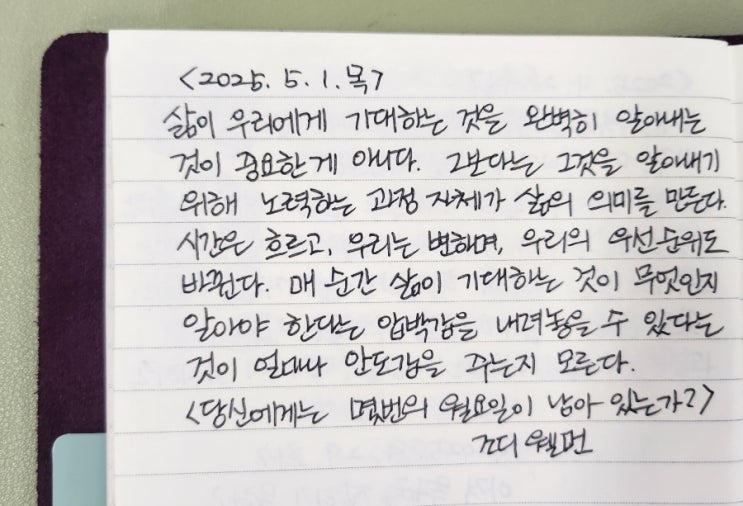 <2025. 5. 1. 목>
삶이 우리에게 기대하는 것을 완벽히 알아내는
것이 중요한게 아니다. 그보다는 그것을 알아내기
위해 노력하는 과정 자체가 삶의 의미를 만든다.
시간은 흐르고, 우리는 변하며, 우리의 우선순위도
바뀐다. 매 순간 삶이 기대하는 것이 무엇인지
알아야 한다는 압박감을 내려놓을 수 있다는
것이 얼마나 안도감을 주는지 모른다.
<당신에게는 몇번의 월요일이 남아 있는가?>
조디 웰먼